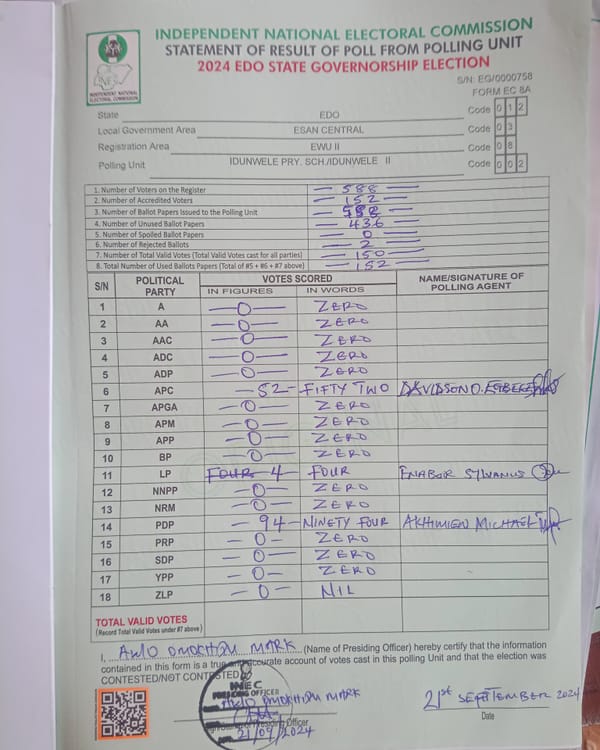 INDEPENDENT NATIONAL ELECTORAL COMMISSION
STATEMENT OF RESULT OF POLL FROM POLLING UNIT
2024 EDO STATE GOVERNORSHIP ELECTION
INDEPENDENT NATIONAL ELECTORAL COMMISSION
S/N: EG/0000758
FORM EC 8A
State EDO Code 0 1 2
Local Government Area ESAN CENTRAL Code 0 3
Registration Area EWU II Code 0 8
Polling Unit IDUNWELE PRY. SCH./IDUNWELE II Code 0 0 2
1. Number of Voters on the Register 588
2. Number of Accredited Voters 152
3. Number of Ballot Papers Issued to the Polling Unit 588
4. Number of Unused Ballot Papers 436
5. Number of Spoiled Ballot Papers 0
6. Number of Rejected Ballots 2
7. Number of Total Valid Votes (Total Valid Votes cast for all parties) 150
8. Total Number of Used Ballots Papers (Total of #5 + #6 + #7 above) 152
S/N POLITICAL PARTY VOTES SCORED NAME/SIGNATURE OF POLLING AGENT
IN FIGURES IN WORDS
1 A -0- ZERO
2 AA -0- ZERO
3 AAC -0- ZERO
4 ADC -0- ZERO
5 ADP -0- ZERO
6 APC -52- FIFTY TWO DAVIDSON O.
7 APGA -0- ZERO
8 APM -0- ZERO
9 APP -0- ZERO
10 BP -0- ZERO
11 LP FOUR 4 FOUR ENABOR SYLVANUS
12 NNPP -0- ZERO
13 NRM -0- ZERO
14 PDP -94- NINETY FOUR AKHIMIEN MICHAEL
15 PRP -0- ZERO
16 SDP -0- ZERO
17 YPP -0- ZERO
18 ZLP -0- NIL
TOTAL VALID VOTES
(Record Total Valid Votes under #7 above)
I, AWO OMOKHOJU MARK (Name of Presiding Officer) hereby certify that the information
contained in this form is a true and accurate account of votes cast in this polling Unit and that the election was
CONTESTED/NOT CONTESTED
INEC
PRESIDING OFFICER
AWO OMOKHOJU MARK
Presiding Officer
21/09/2024
21st SEPTEMBER 2024
Date